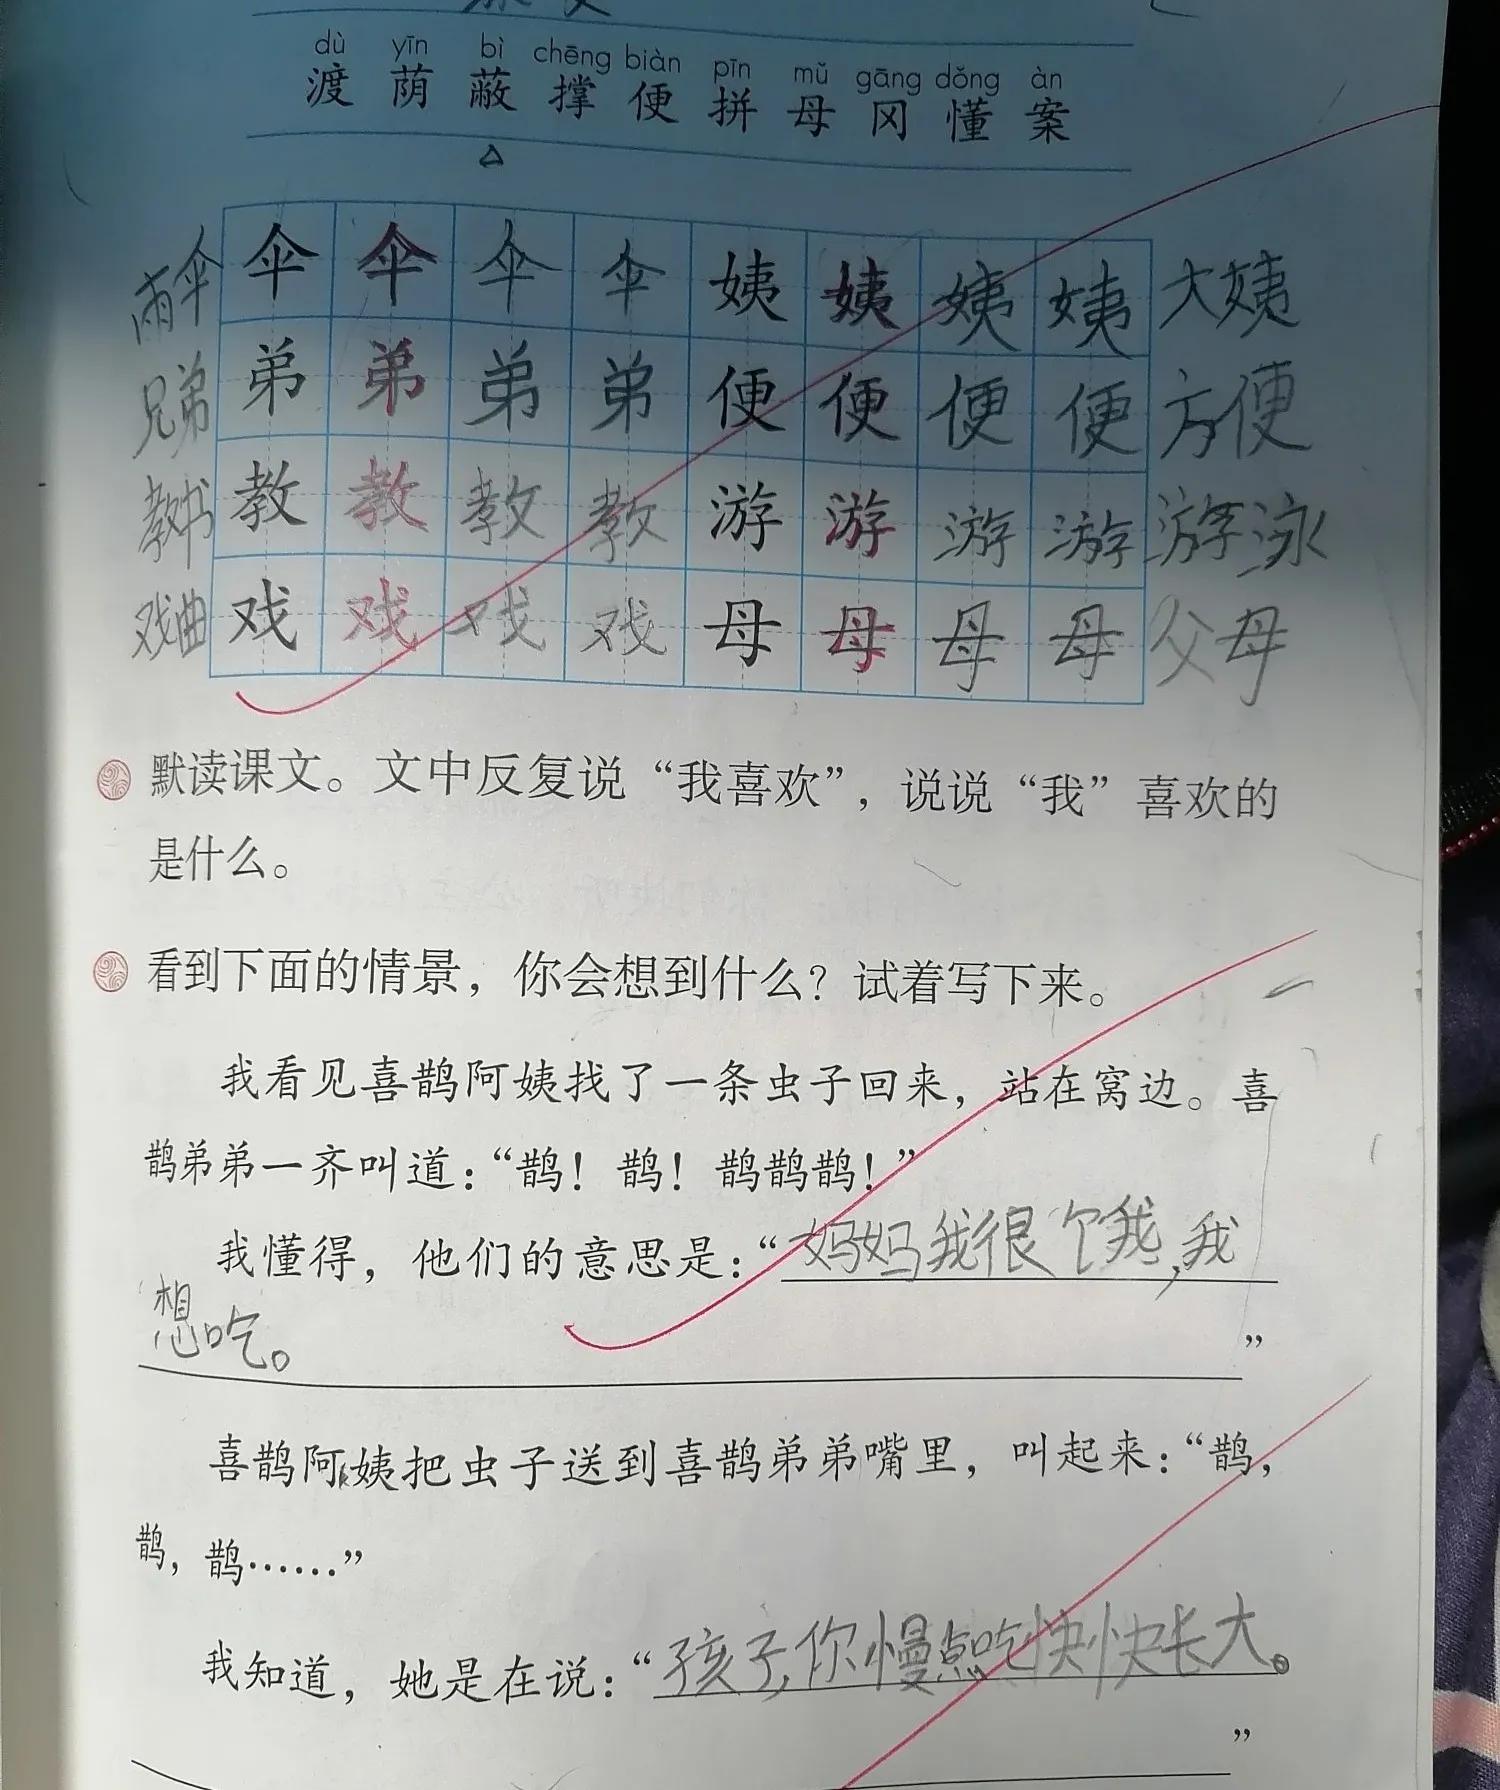 dù yīn bì chēng biàn pīn mǔ gāng dǒng àn
渡 荫 蔽 撑 便 拼 母 冈 懂 案
雨伞 伞 伞 伞 伞 姨 姨 姨 姨 大姨
兄弟 弟 弟 弟 弟 便 便 便 便 方便
教书 教 教 教 教 游 游 游 游 游泳
戏曲 戏 戏 戏 戏 母 母 母 母 父母
默读课文。文中反复说“我喜欢”，说说“我”喜欢的
是什么。
看到下面的情景，你会想到什么？试着写下来。
我看见喜鹊阿姨找了一条虫子回来，站在窝边。喜
鹊弟弟一齐叫道：“鹊！鹊！鹊鹊鹊！”
我懂得，他们的意思是：“妈妈我很饿，我
想吃。
”
喜鹊阿姨把虫子送到喜鹊弟弟嘴里，叫起来：“鹊，
鹊，鹊……”
我知道，她是在说：“孩子，你慢点吃快快长大。
”